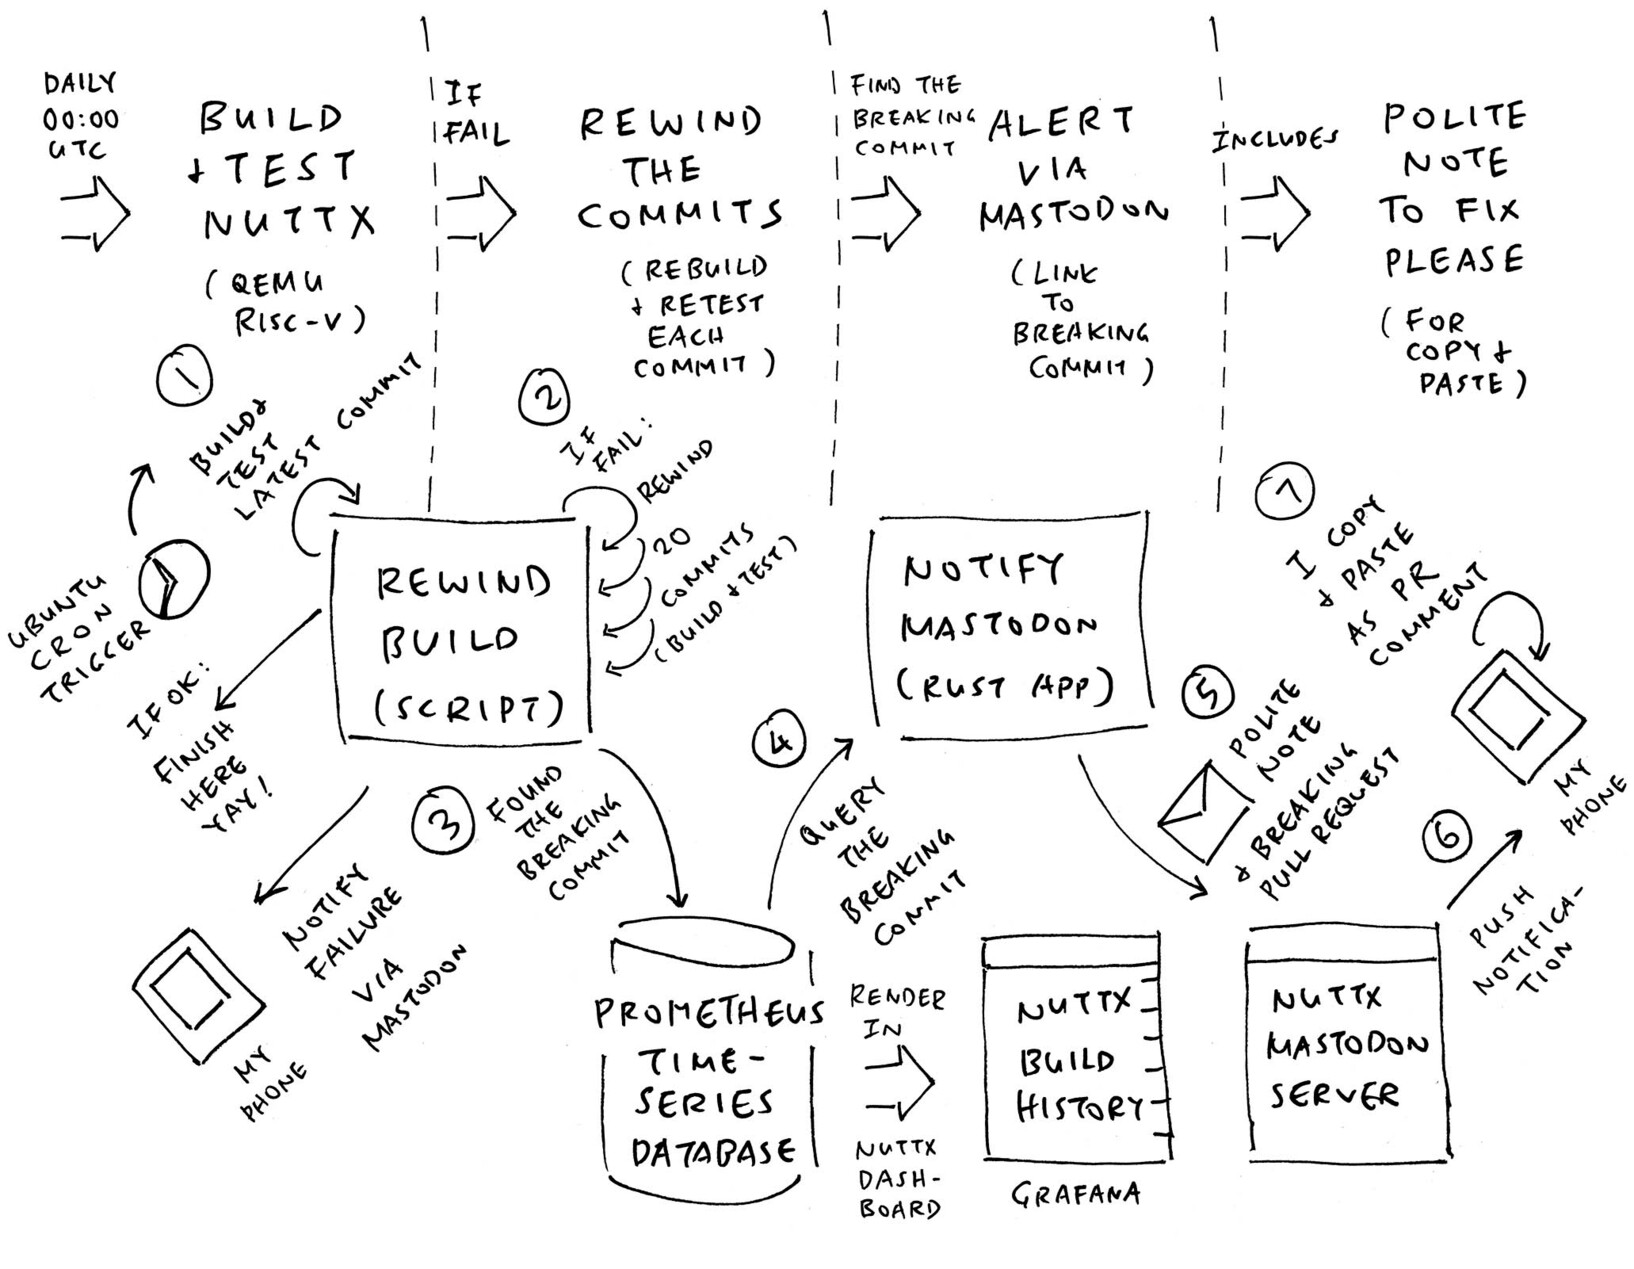 DAILY
00:00
UTC
BUILD
+ TEST
NUTTX
(QEMU
RISC-V)
IF
FAIL
REWIND
THE
COMMITS
(REBUILD
+ RETEST
EACH
COMMIT)
FIND THE
BREAKING
COMMIT
ALERT
VIA
MASTODON
(LINK
TO
BREAKING
COMMIT)
INCLUDES
POLITE
NOTE
TO FIX
PLEASE
(FOR
COPY +
PASTE)
1
BUILD +
TEST
LATEST COMMIT
UBUNTU
CRON
TRIGGER
2
IF
FAIL:
REWIND
20
COMMITS
(BUILD + TEST)
REWIND
BUILD
(SCRIPT)
IF OK:
FINISH
HERE
YAY!
NOTIFY
FAILURE
VIA
MASTODON
MY
PHONE
3
FOUND
THE
BREAKING
COMMIT
PROMETHEUS
TIME-
SERIES
DATABASE
4
QUERY
THE
BREAKING
COMMIT
NOTIFY
MASTODON
(RUST APP)
RENDER
IN
NUTTX
DASH-
BOARD
NUTTX
BUILD
HISTORY
GRAFANA
5
POLITE
NOTE
+ BREAKING
PULL REQUEST
NUTTX
MASTODON
SERVER
6
PUSH
NOTIFICA-
TION
7
I COPY
+ PASTE
AS PR
COMMENT
MY
PHONE